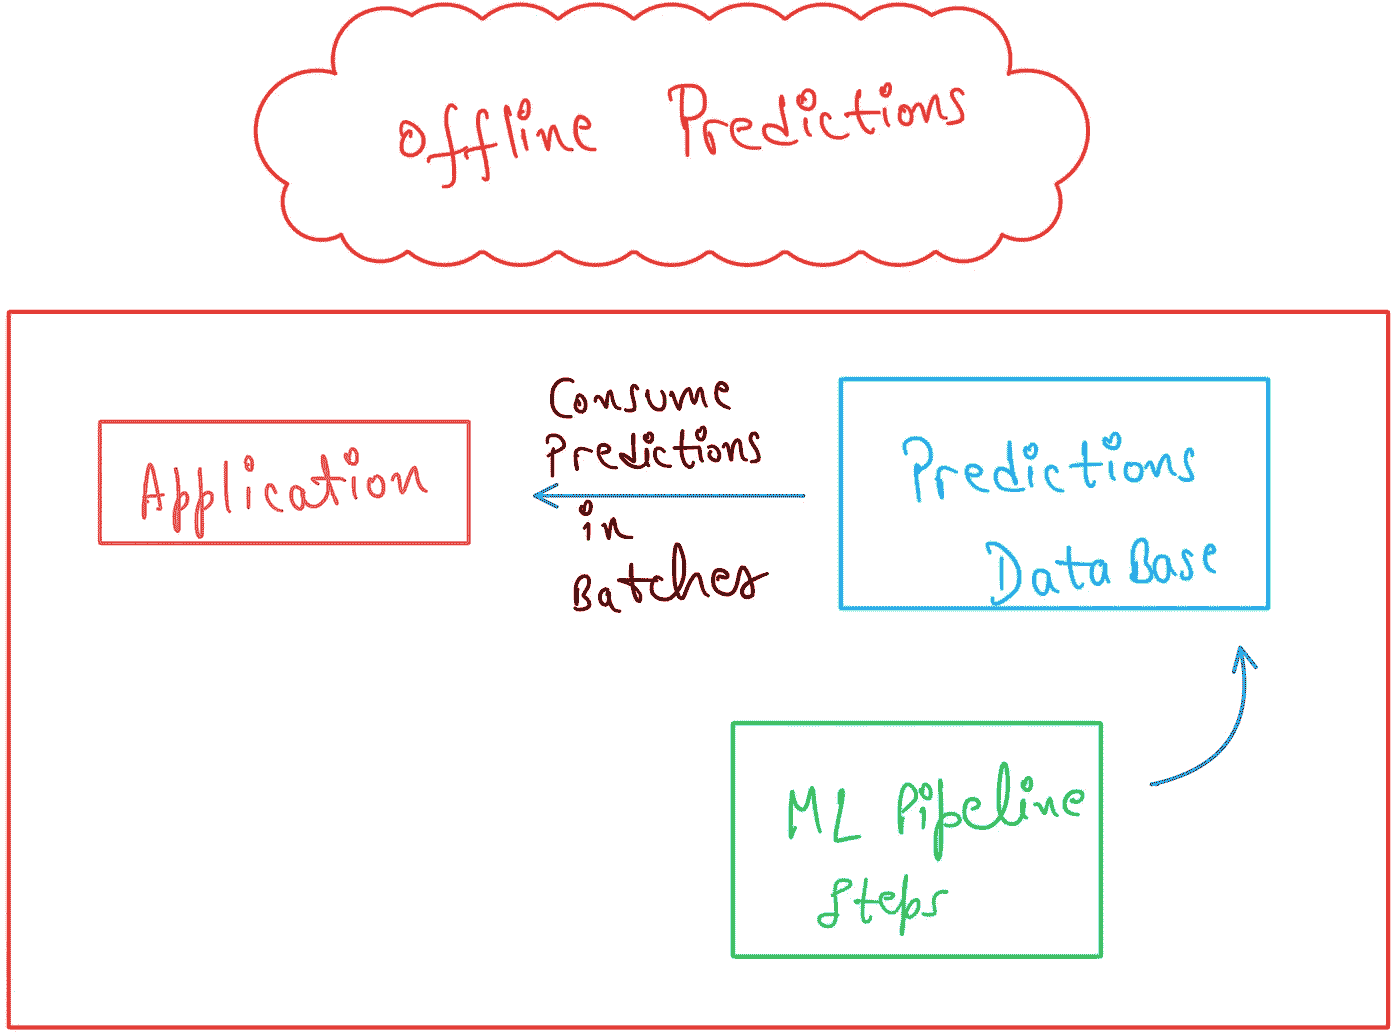 Offline Predictions
Application
Consume
Predictions
in
Batches
Predictions
DataBase
ML Pipeline
Steps